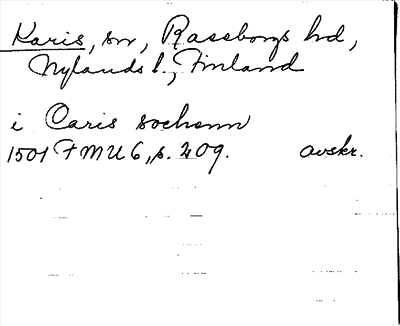 Karis, sn, Raseborgs hd,
Nylands l., Finland
i Caris sochenn
1501 FMU 6, s. 209. avskr.